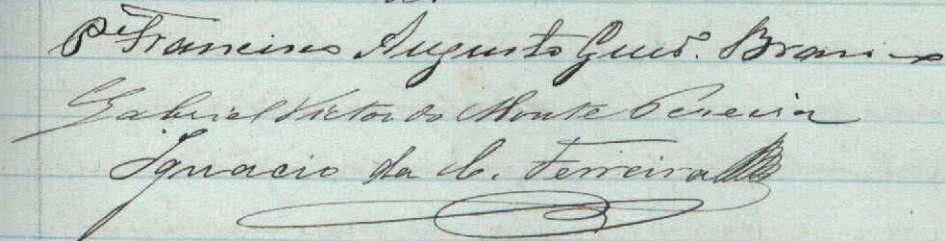 Pe. Francisco Augusto Gued.
Gabriel Victor do Monte Pereira
Ignacio da C. Ferreira